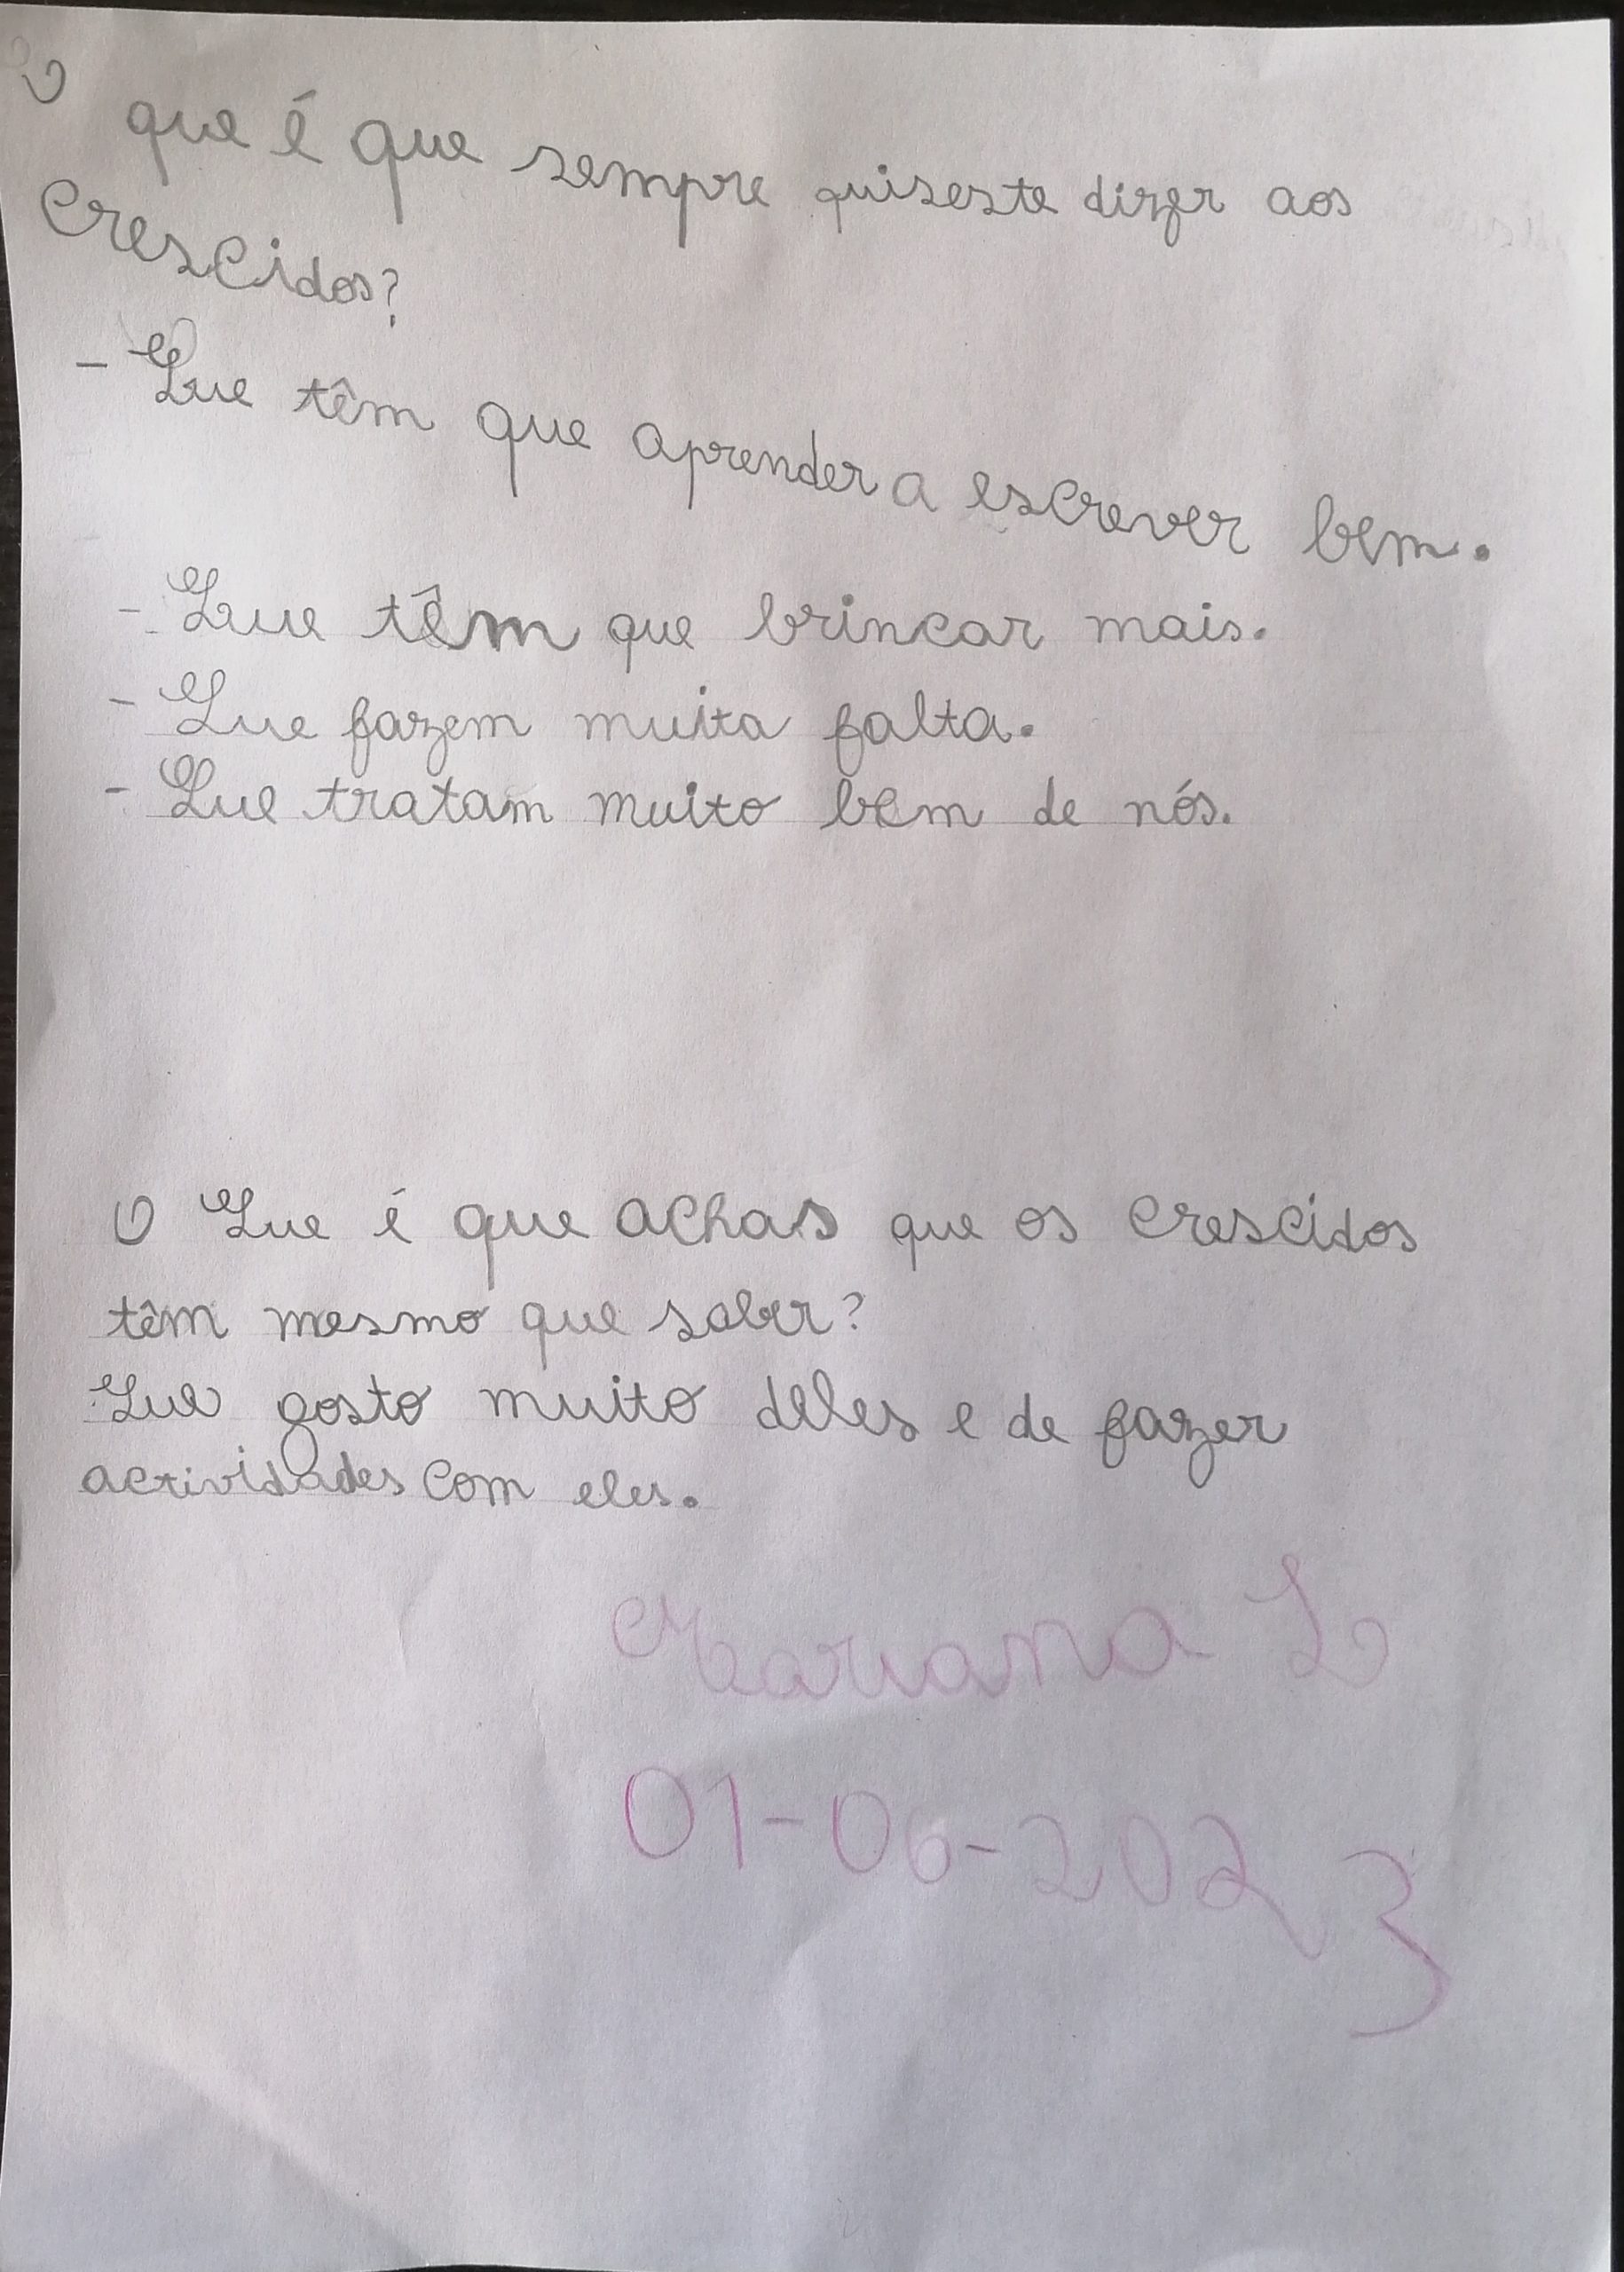 O que é que sempre quiseste dizer aos
crescidos?
- Que têm que aprender a escrever bem.
- Que têm que brincar mais.
- Que fazem muita falta.
- Que tratam muito bem de nós.
O Que é que achas que os crescidos
têm mesmo que saber?
Que gosto muito deles e de fazer
actividades com eles.
Mariana L
01-06-2023